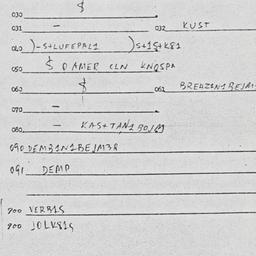 030 $
031 - 032 KUST
040 )-S+LUFEPAL1 )S+1S+K81
050 $ D AMER CLN KNQSPA
060 $ 061 BREHZEN1BEJM1
070 -
080 - KAS+TAN1BOJM1
090 DEMB1N1BEJM38
091 DEMP
900 VERB1S
900 JOLK81S